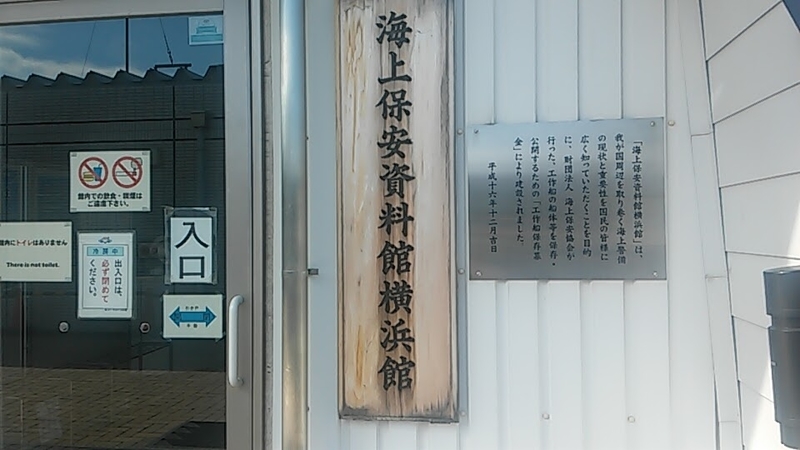 海上保安資料館横浜館
「海上保安資料館横浜館」は、
我が国周辺を取り巻く海上警備
の現状と重要性を国民の皆様に
広く知っていただくことを目的
に、財団法人 海上保安協会が
行った、工作船の船体等を保存・
公開するための「工作船保存募
金」により建設されました。
平成十六年十二月吉日
館内での飲食・喫煙は
ご遠慮下さい。
館内にトイレはありません
There is not toilet.
冷房中
出入口は、
必ず閉めて
ください。
入口